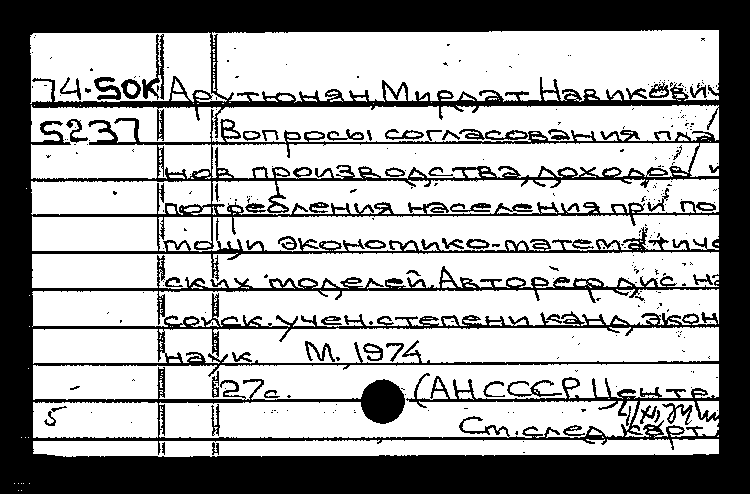 74-50К Арутюнян, Мирдат Навикович
5237 Вопросы согласования пла
нов производства, доходов и
потребления населения при по
мощи экономико-математиче
ских моделей. Автореф. дис. на
соиск. учен. степени канд. экон.
наук. М., 1974.
27с. (АН СССР. Центр.
5
Ст. след. карт.